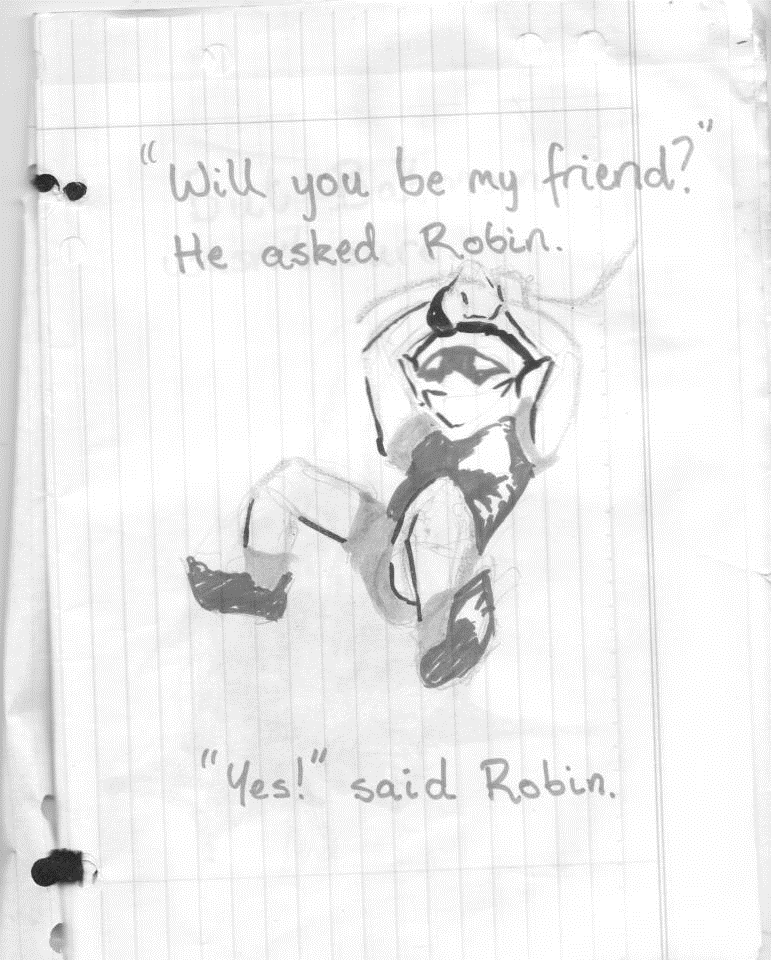 "Will you be my friend?"
He asked Robin.
"Yes!" said Robin.